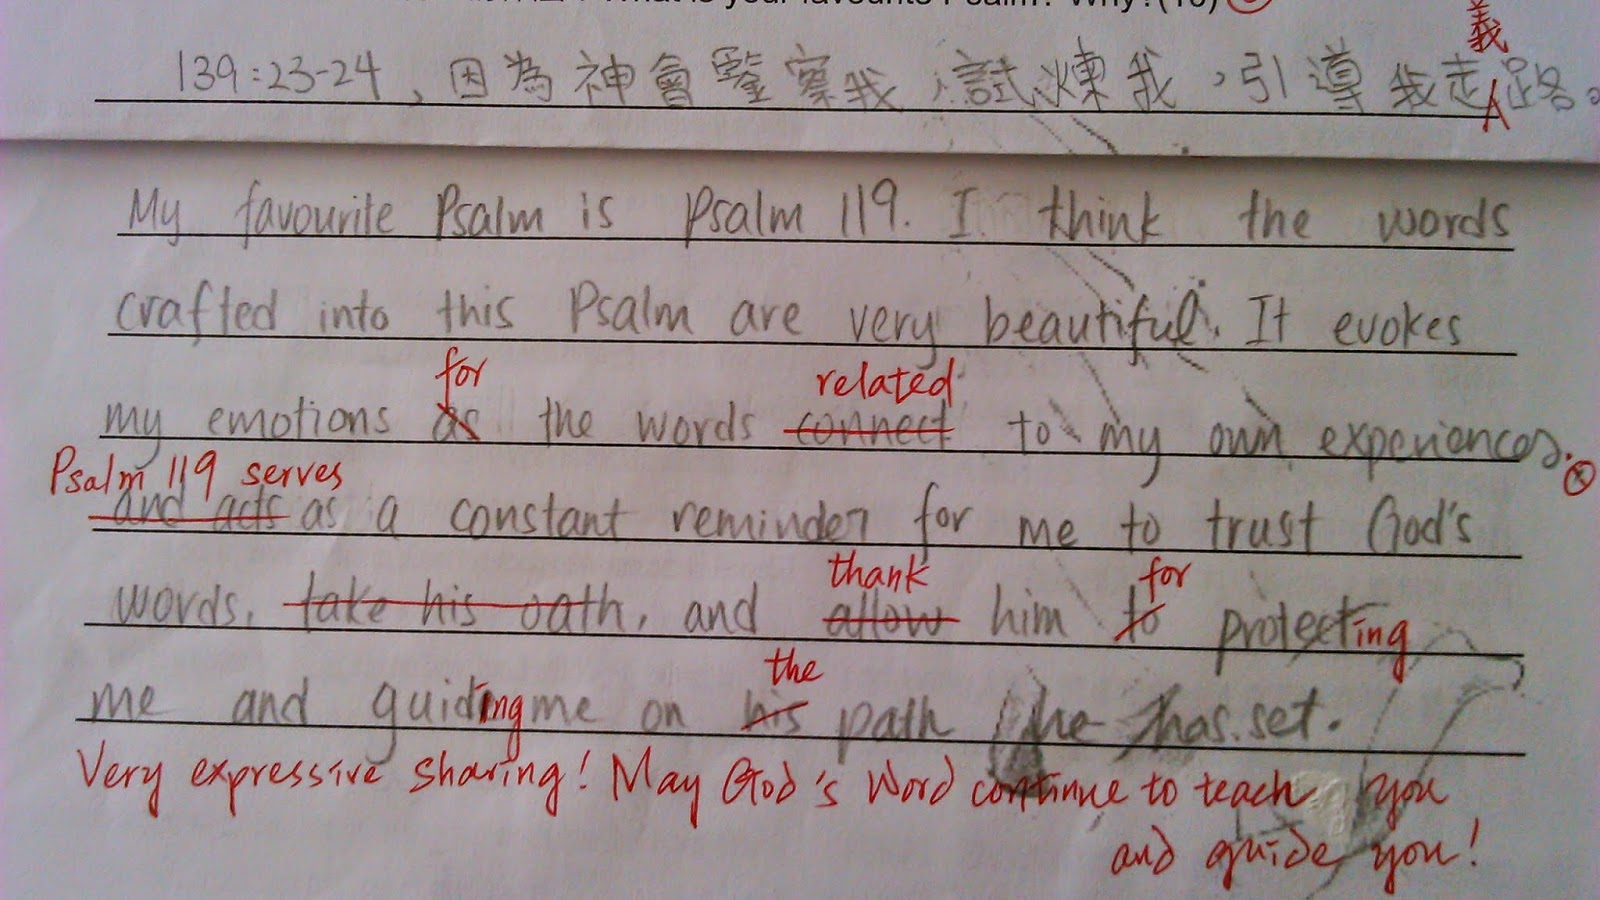 What is your favourite Psalm? Why? (10)
義
139:23-24, 因為神會鑒察我,試煉我,引導我走路。
My favourite Psalm is Psalm 119. I think the words
crafted into this Psalm are very beautiful. It evokes
for related
my emotions as the words connect to my own experiences.
Psalm 119 serves
and acts as a constant reminder for me to trust God's
thank for
words, take his oath, and allow him to protecting
the
me and guiding me on his path he has set.
Very expressive sharing! May God's Word continue to teach you
and guide you!